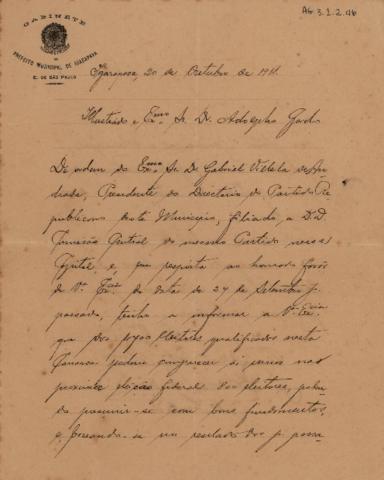 AG.3.1.2.46
GABINETE
DO
PREFEITO MUNICIPAL DE IGARAPAVA
E. DE SÃO PAULO
Igarapava, 20 de Outubro de 1911.
Illustrado e Exmo. Sr. Dr. Adolpho Gordo
De ordem do Exmo Sr. Dr. Gabriel Villela de An-
drade, Presidente do Directorio do Partido Re-
publicano deste Municipio, filiado a D.D.
Comissão Central do mesmo Partido nessa
Capital, e em resposta ao honrado
de Va. Exa. de data de 27 de Setembro p.
passado, tenho a informar a Va. Excia.
que dos eleitores qualificados nesta
Comarca podem comparecer
proxima eleição federal eleitores, poden-
do presumir-se com bons fundamentos,
e baseando-se no resultado do p. passa-